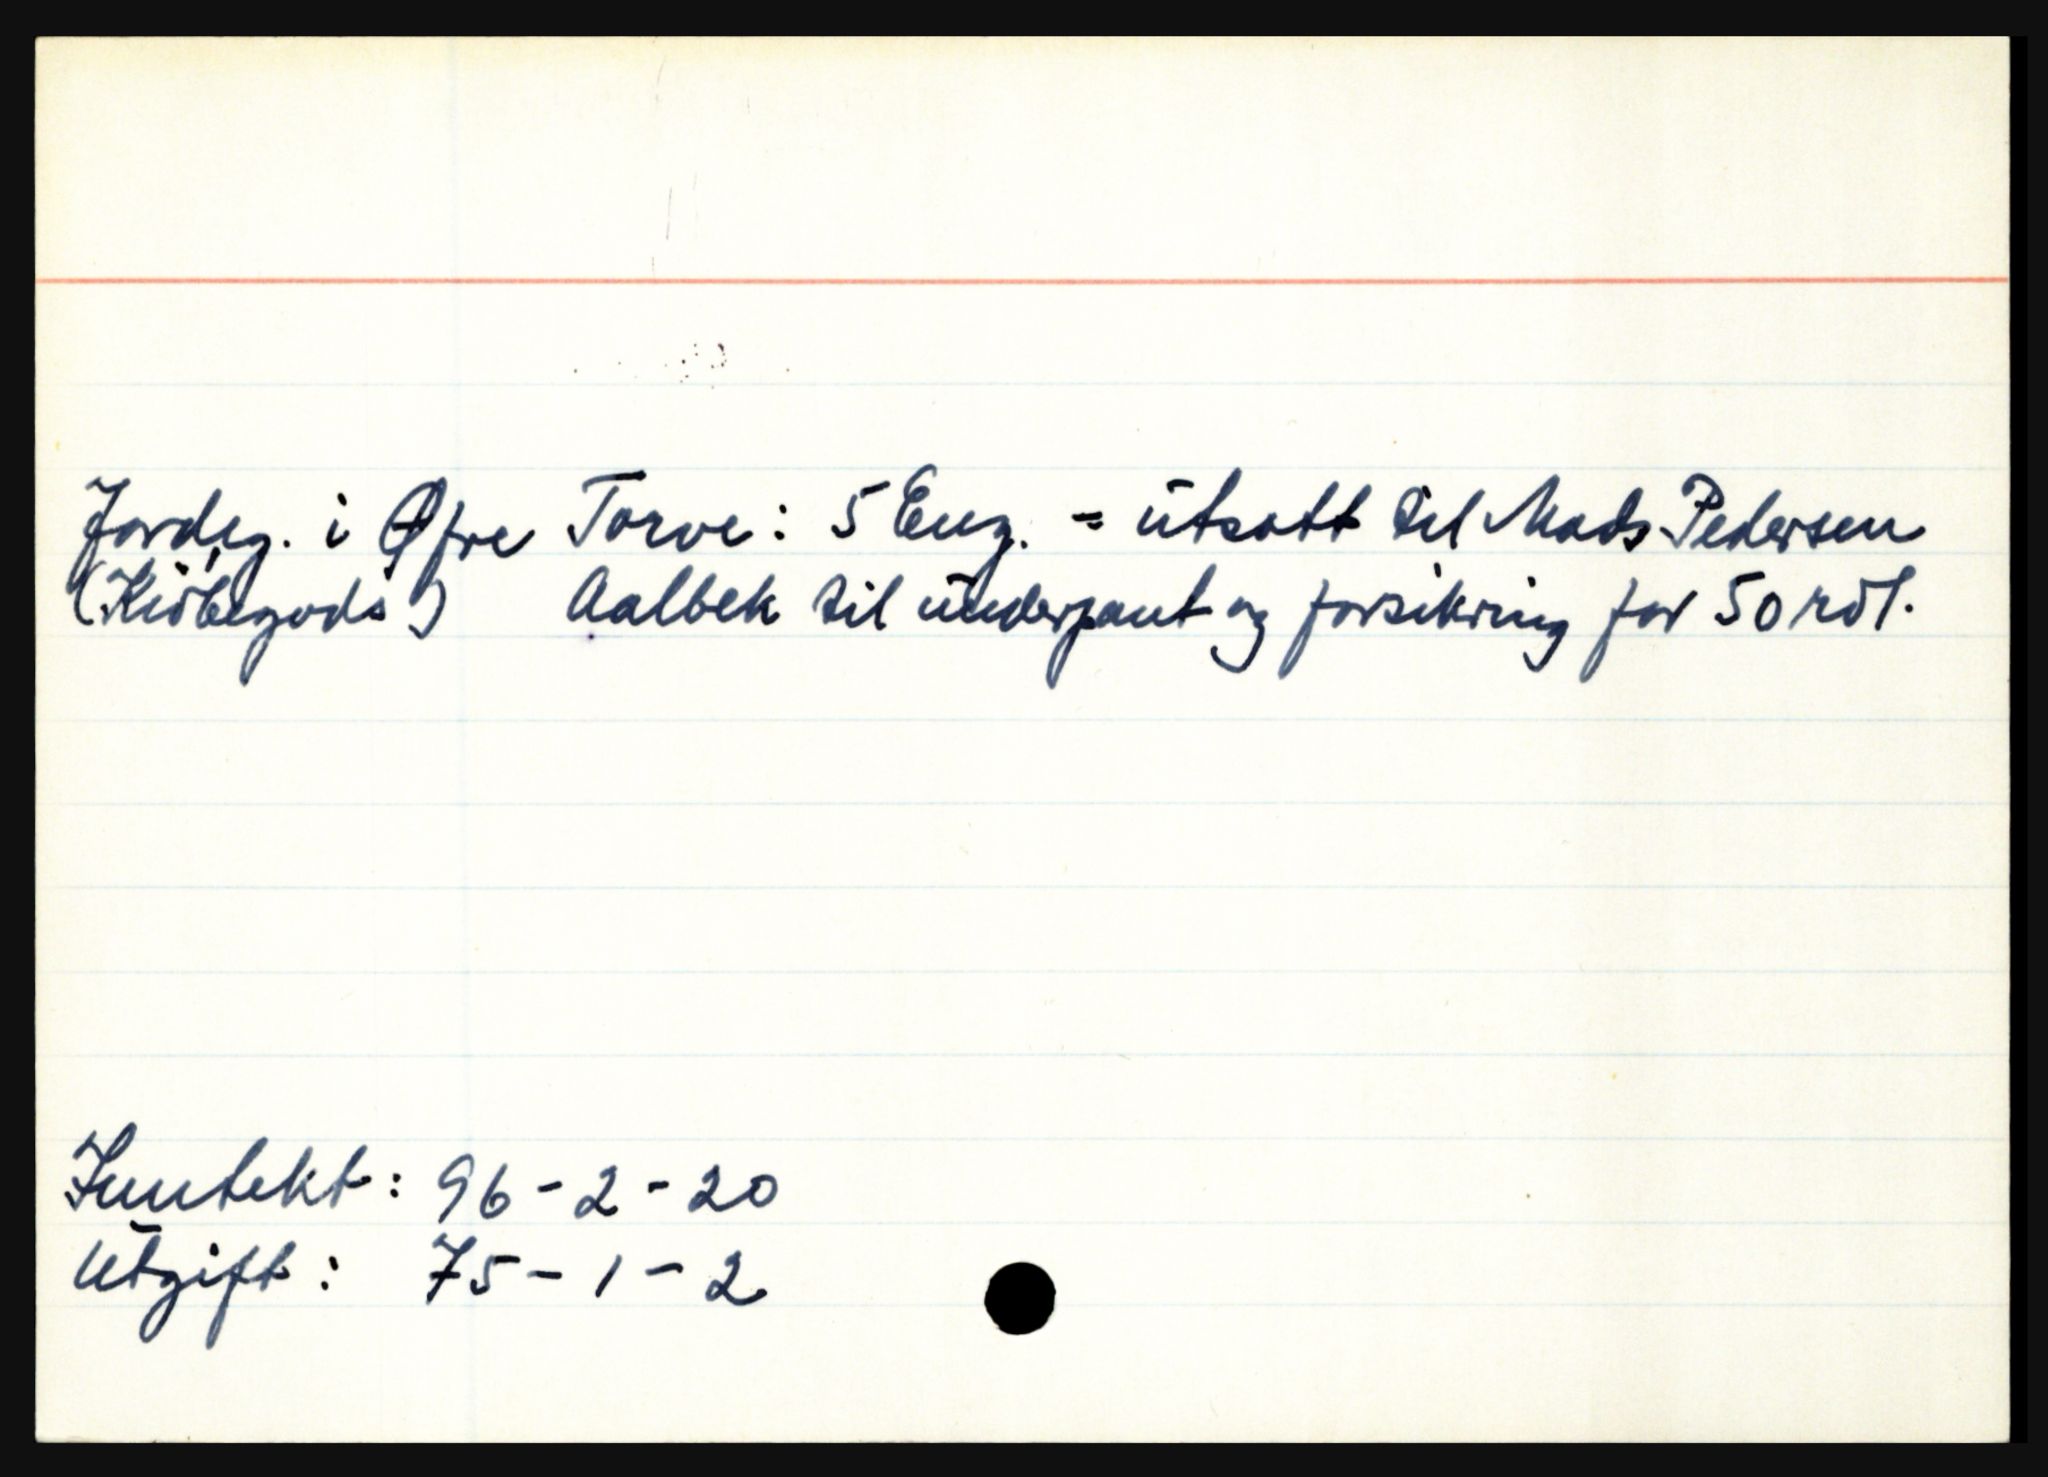 Jordeg. i Øfre Torve: 5 Eng. = utsatt til Mads Pedersen
(Kiöbegods) Aalbek til underpant og forsikring for 50 rdl.
Inntekt: 96 - 2 - 20
Utgift: 75 - 1 - 2